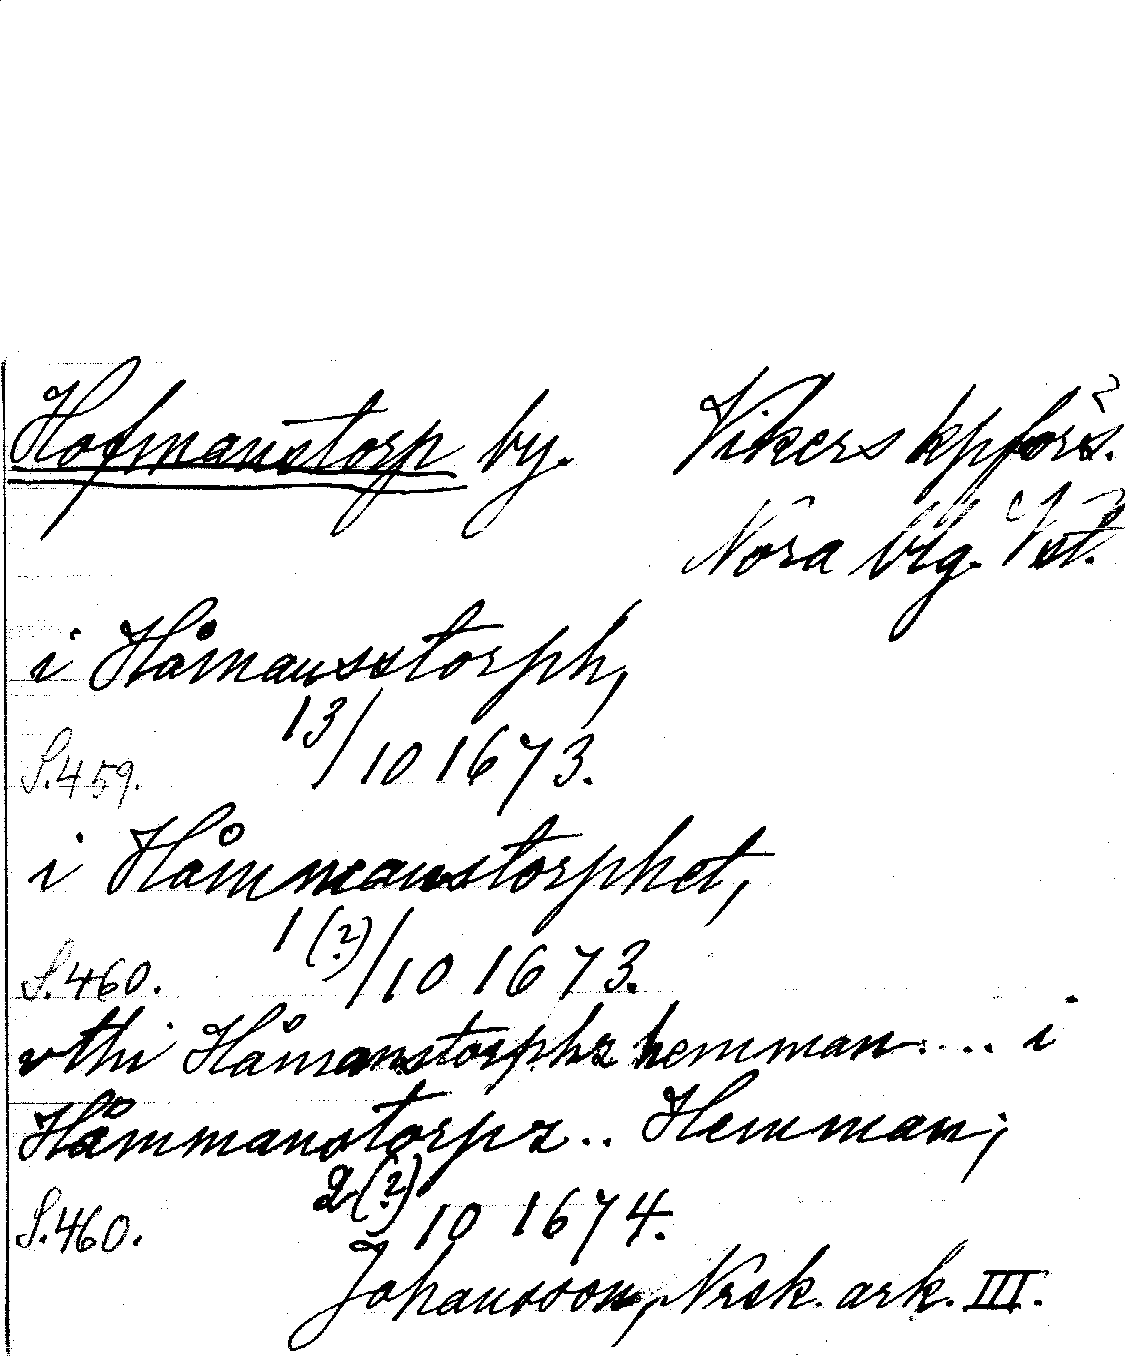 Hofmanstorp by. Vikers kpförs.
Nora blg. Vstl.
i Håmansstorph,
13/10 1673.
S.459.
i Håmmanstorphet,
1(?)/10 1673.
S.460.
vthi Håmanstorphz hemman.... i
Håmmanstorpz.. Hemman,
2(?)/10 1674.
S.460.
Johansson, Nrsk. ark. III.